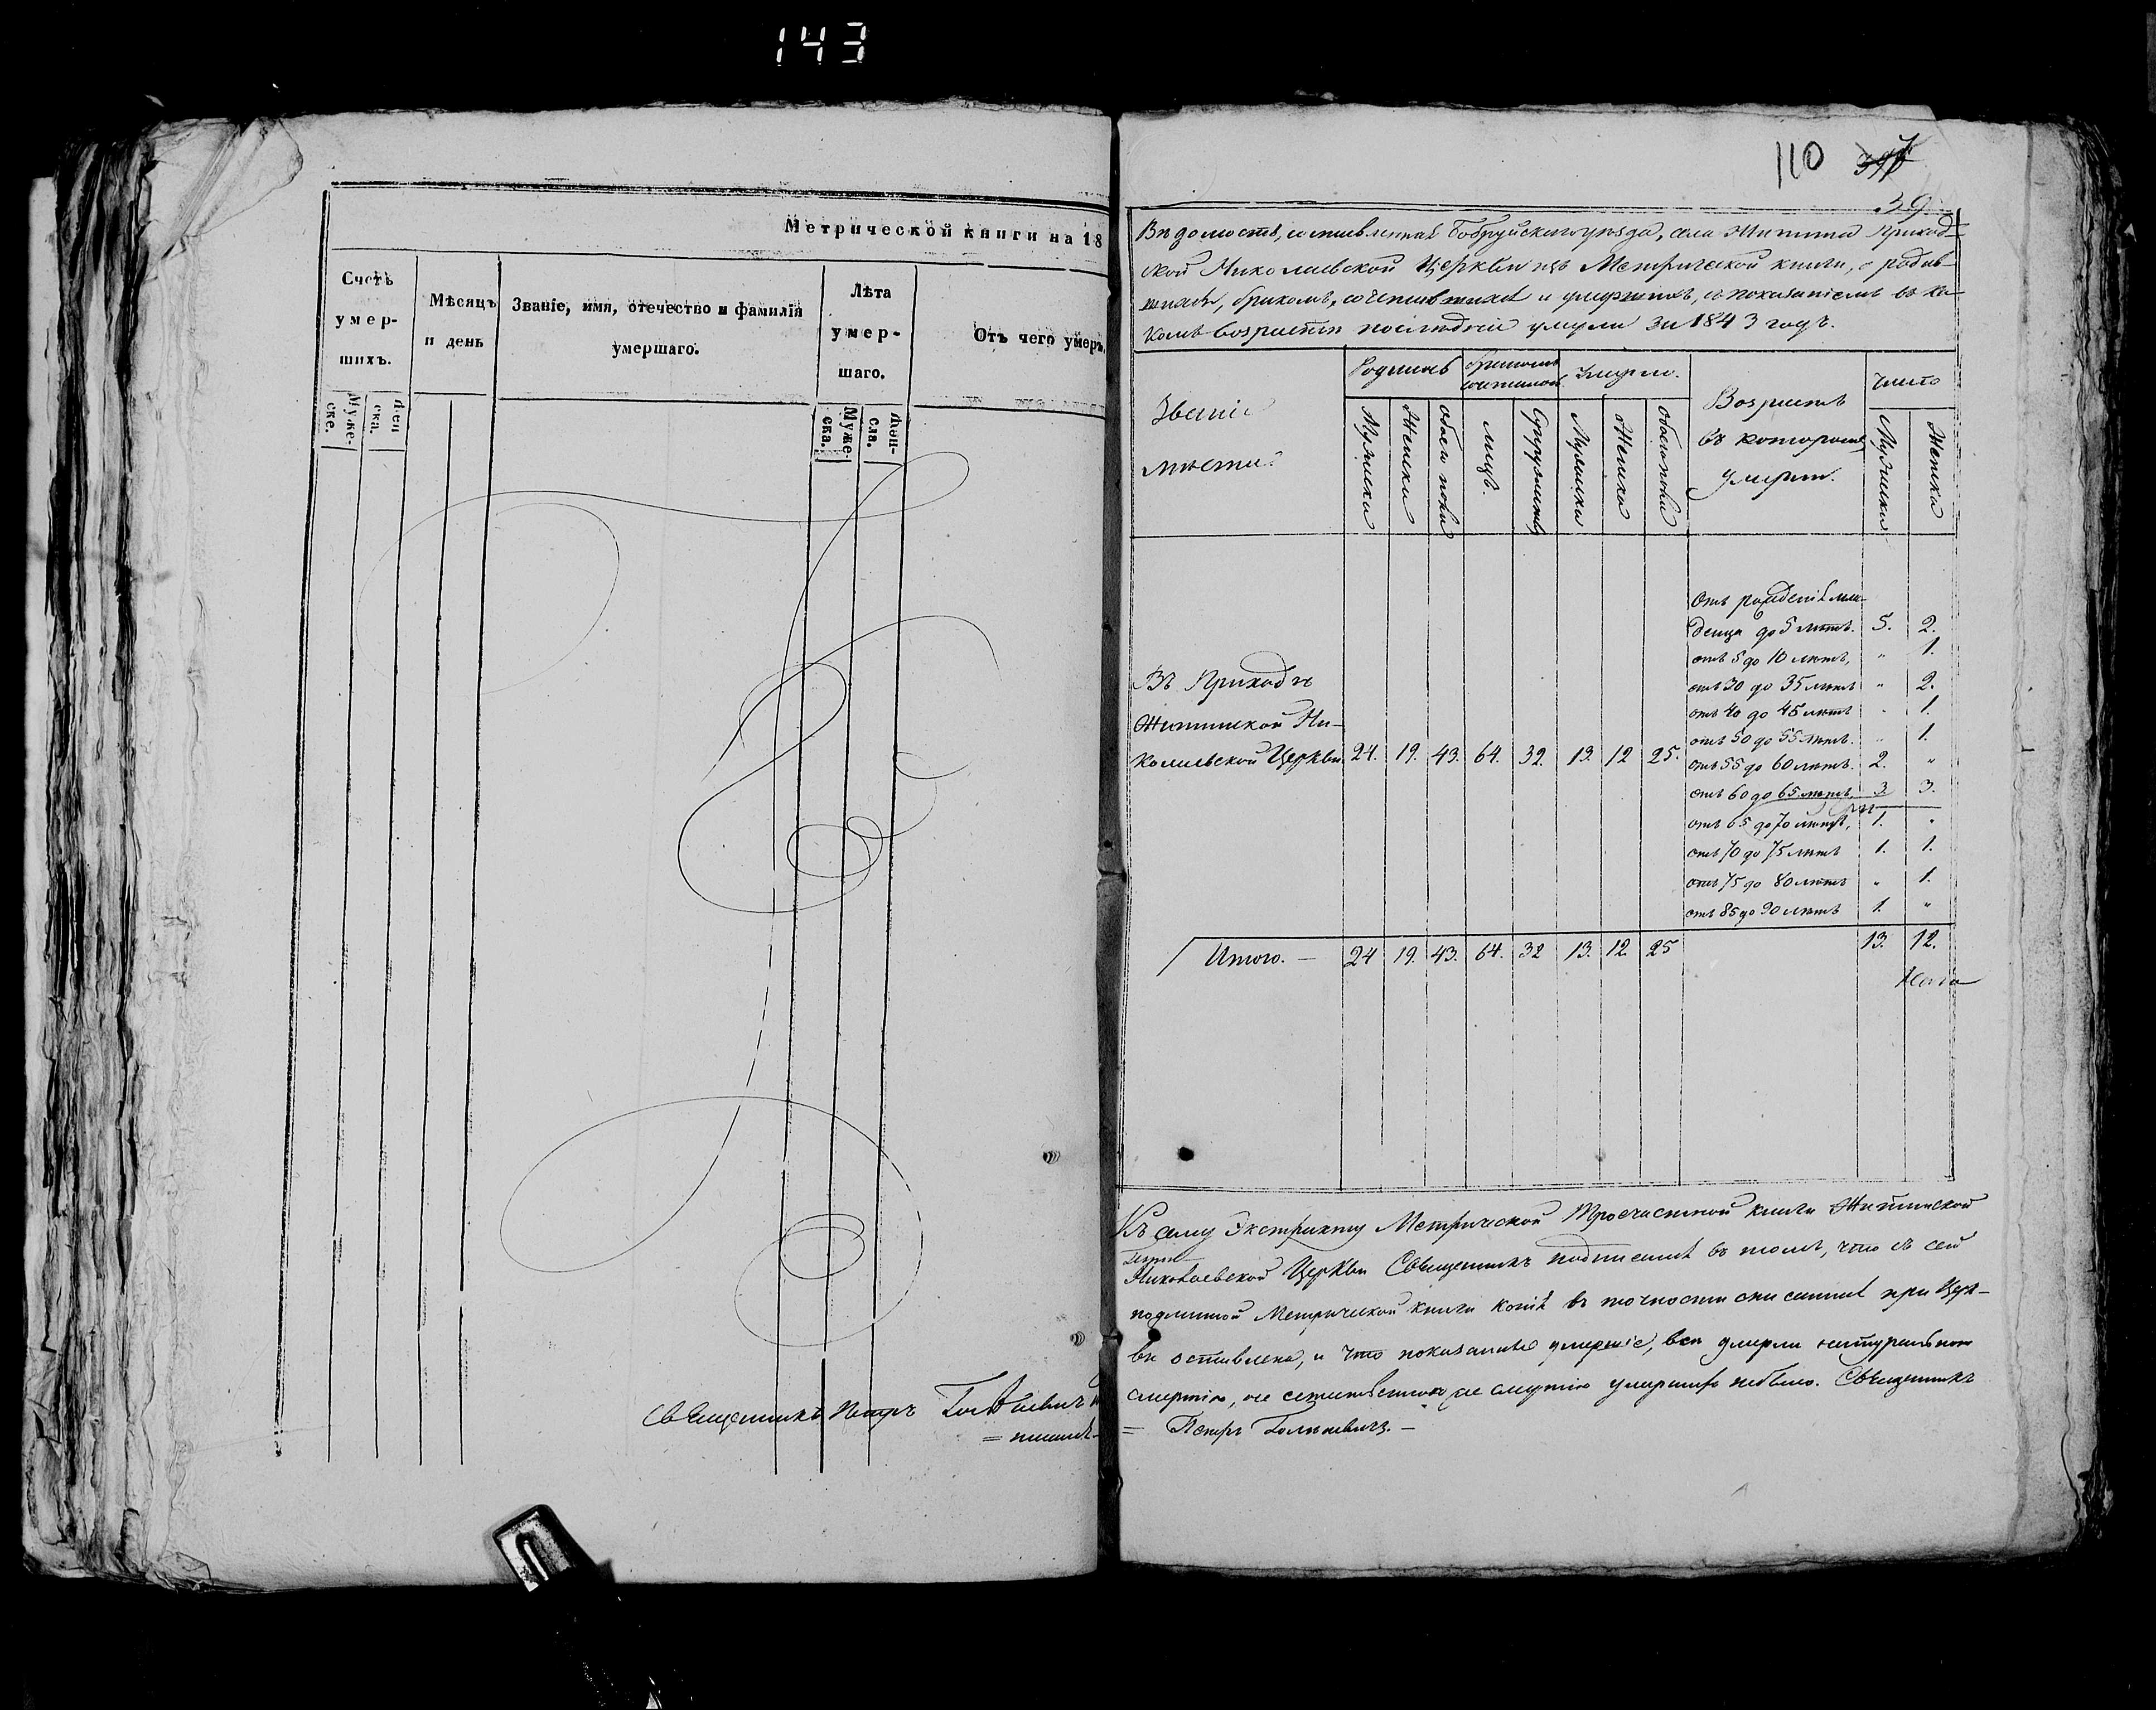 143
Метрической книги на 18
Счетъ
умер-
шихъ.
Муже-
ске.
Жен
ска.
Мѣсяцъ
и день
Званіе, имя, отечество и фамилія
умершаго.
Лѣта
умер-
шаго.
Муже-
ска.
Жен-
ска.
Отъ чего умеръ,
Священникъ Петръ
110
39
Вѣдомость, составленная Бобруйскаго уѣзда, села Житина Приход-
ской Николаевской Церкви изъ Метрической книги, о родив-
шихся, бракомъ, сочетавшихся и умершихъ, съ показаніемъ въ ка-
комъ возрастѣ послѣдніе умерли за 1843 годъ.
Званіе
мѣста.
Родилось
Мужеска
Женска
обоего пола
бракомъ
сочеталось
лицъ.
Супружествъ
Умерло.
Мужеска
Женска
обоего пола
Возрастъ
въ которомъ
умерли.
Число
Мужеска
Женска
Отъ рожденія мла-
денца до 5 лѣтъ. 5. 2.
отъ 5 до 10 лѣтъ, " 1.
отъ 30 до 35 лѣтъ " 2.
отъ 40 до 45 лѣтъ " 1.
отъ 50 до 55 лѣтъ. " 1.
отъ 55 до 60 лѣтъ. 2. "
отъ 60 до 65 лѣтъ, 3. 3.
отъ 65 до 70 лѣтъ, 1. "
отъ 70 до 75 лѣтъ 1. 1.
отъ 75 до 80 лѣтъ " 1.
отъ 85 до 90 лѣтъ 1. "
Въ Приходѣ
Житинской Ни-
колаевской Церкви 24. 19. 43. 64. 32. 13. 12 25.
Итого. — 24 19. 43. 64. 32 13. 12. 25 13. 12.
Къ сему Экстракту Метрической Троечастной книги Житинской
Николаевской Церкви Священникъ подписался въ томъ, что съ сей
подлинной Метрической книги копія въ точности списанная при Церк-
ви оставлена, и что показанные умершіе, все умерли натуральною
смертію, не естественною же смертію умершихъ небыло. Священникъ
= Петръ